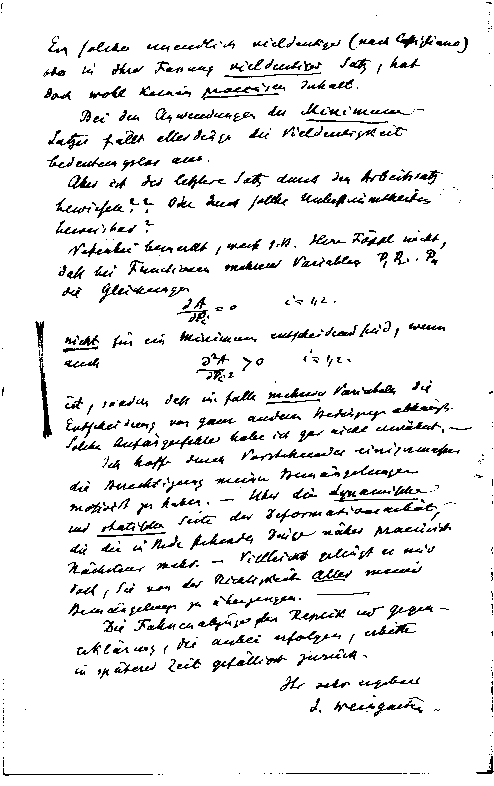 Ein solcher unendlich vieldeutiger (nach Castigliano)
oder in Ihrer Fassung vieldeutiger Satz, hat
doch wohl keinen praecisen Inhalt.
Bei den Anwendungen des Minimum-
Satzes fällt allerdings die Vieldeutigkeit
bedeutungslos aus.
Aber ist der letztere Satz durch den Arbeitssatz
bewiesen?? Oder durch solche Unbestimmtheiten
beweisbar?
Nebenbei bemerkt, merkt z.B. Herr Föppl nicht,
daß bei Functionen mehrerer Variablen P₁ P₂ .. Pₙ
die Gleichungen
∂A/∂Pᵢ = 0 i = 1,2..
nicht für ein Minimum entscheidend sind, wenn
auch ∂²A/∂Pᵢ² > 0 i = 1,2..
ist, sondern daß im Falle mehrerer Variabeln die
Entscheidung von ganz anderen Bedingungen abhängt.
Solche Anfängerfehler habe ich gar nicht erwähnt. —
Ich hoffe durch Vorstehendes einigermaßen
die Berechtigung meiner Bemängelungen
motivirt zu haben. — Über die dynamische
und statische Seite der Deformationsarbeit,
die die in Rede stehenden Dinge näher praecisirt
Nächstens mehr. — Vielleicht gelingt es mir
doch, Sie von der Richtigkeit Aller meiner
Bemängelungen zu überzeugen. —
Die Fahnenabzüge der Replik und Gegen-
erklärung, die anbei erfolgen, erbitte
in späterer Zeit gefälligst zurück.
Ihr sehr ergebener
J. Weingarten.